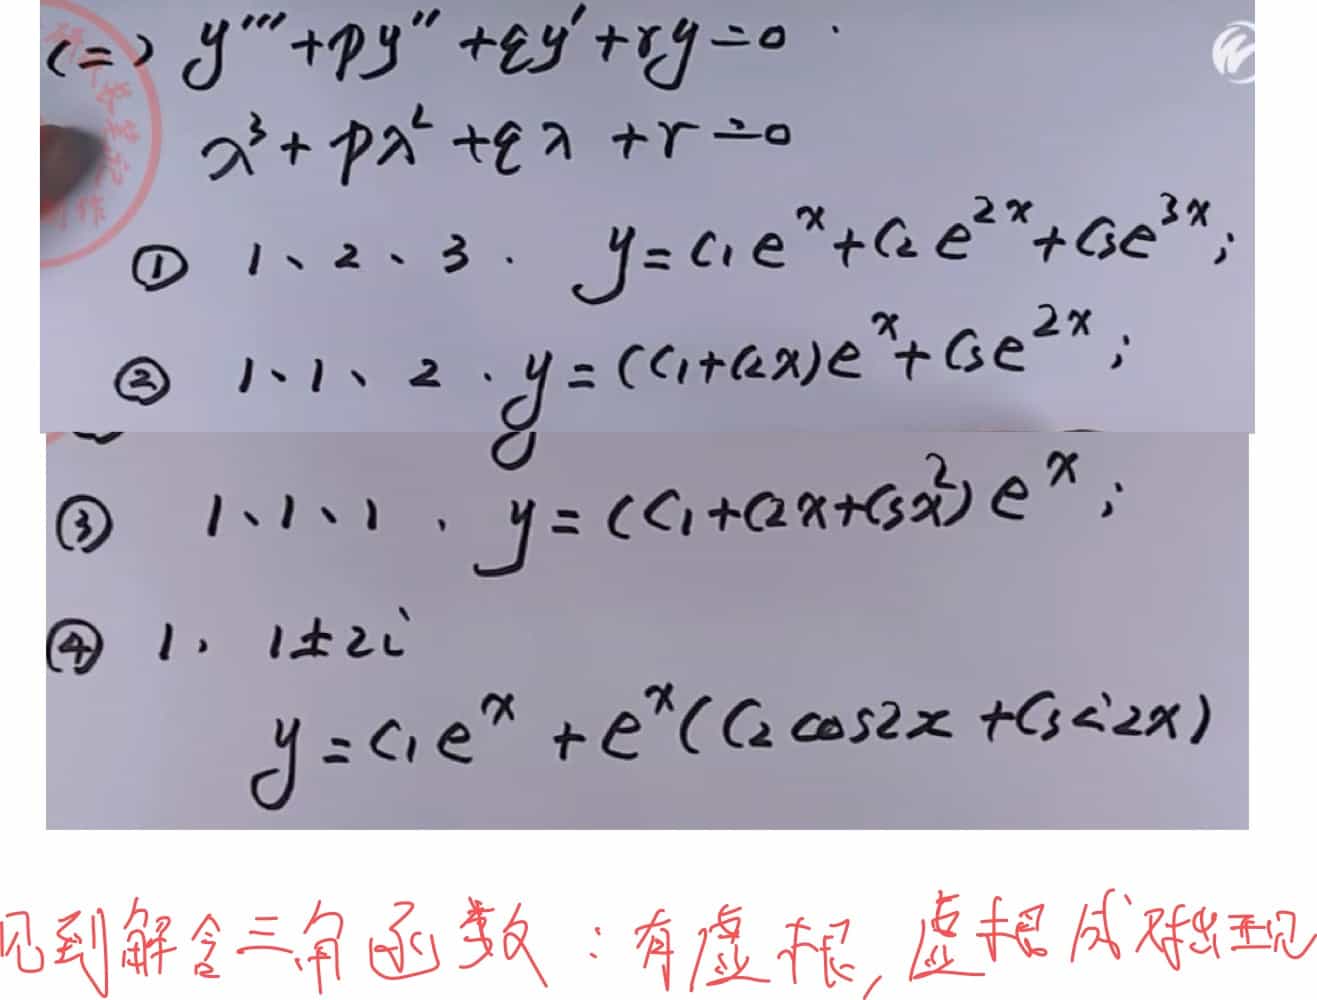 (二) y''' + py'' + qy' + ry = 0
λ³ + pλ² + qλ + r = 0
① 1、2、3. y = C₁eˣ + C₂e²ˣ + C₃e³ˣ;
② 1、1、2. y = (C₁+C₂x)eˣ + C₃e²ˣ;
③ 1、1、1. y = (C₁+C₂x+C₃x²)eˣ;
④ 1, 1±2i
y = C₁eˣ + eˣ(C₂cos2x + C₃sin2x)
见到解含三角函数:有虚根,虚根成对出现